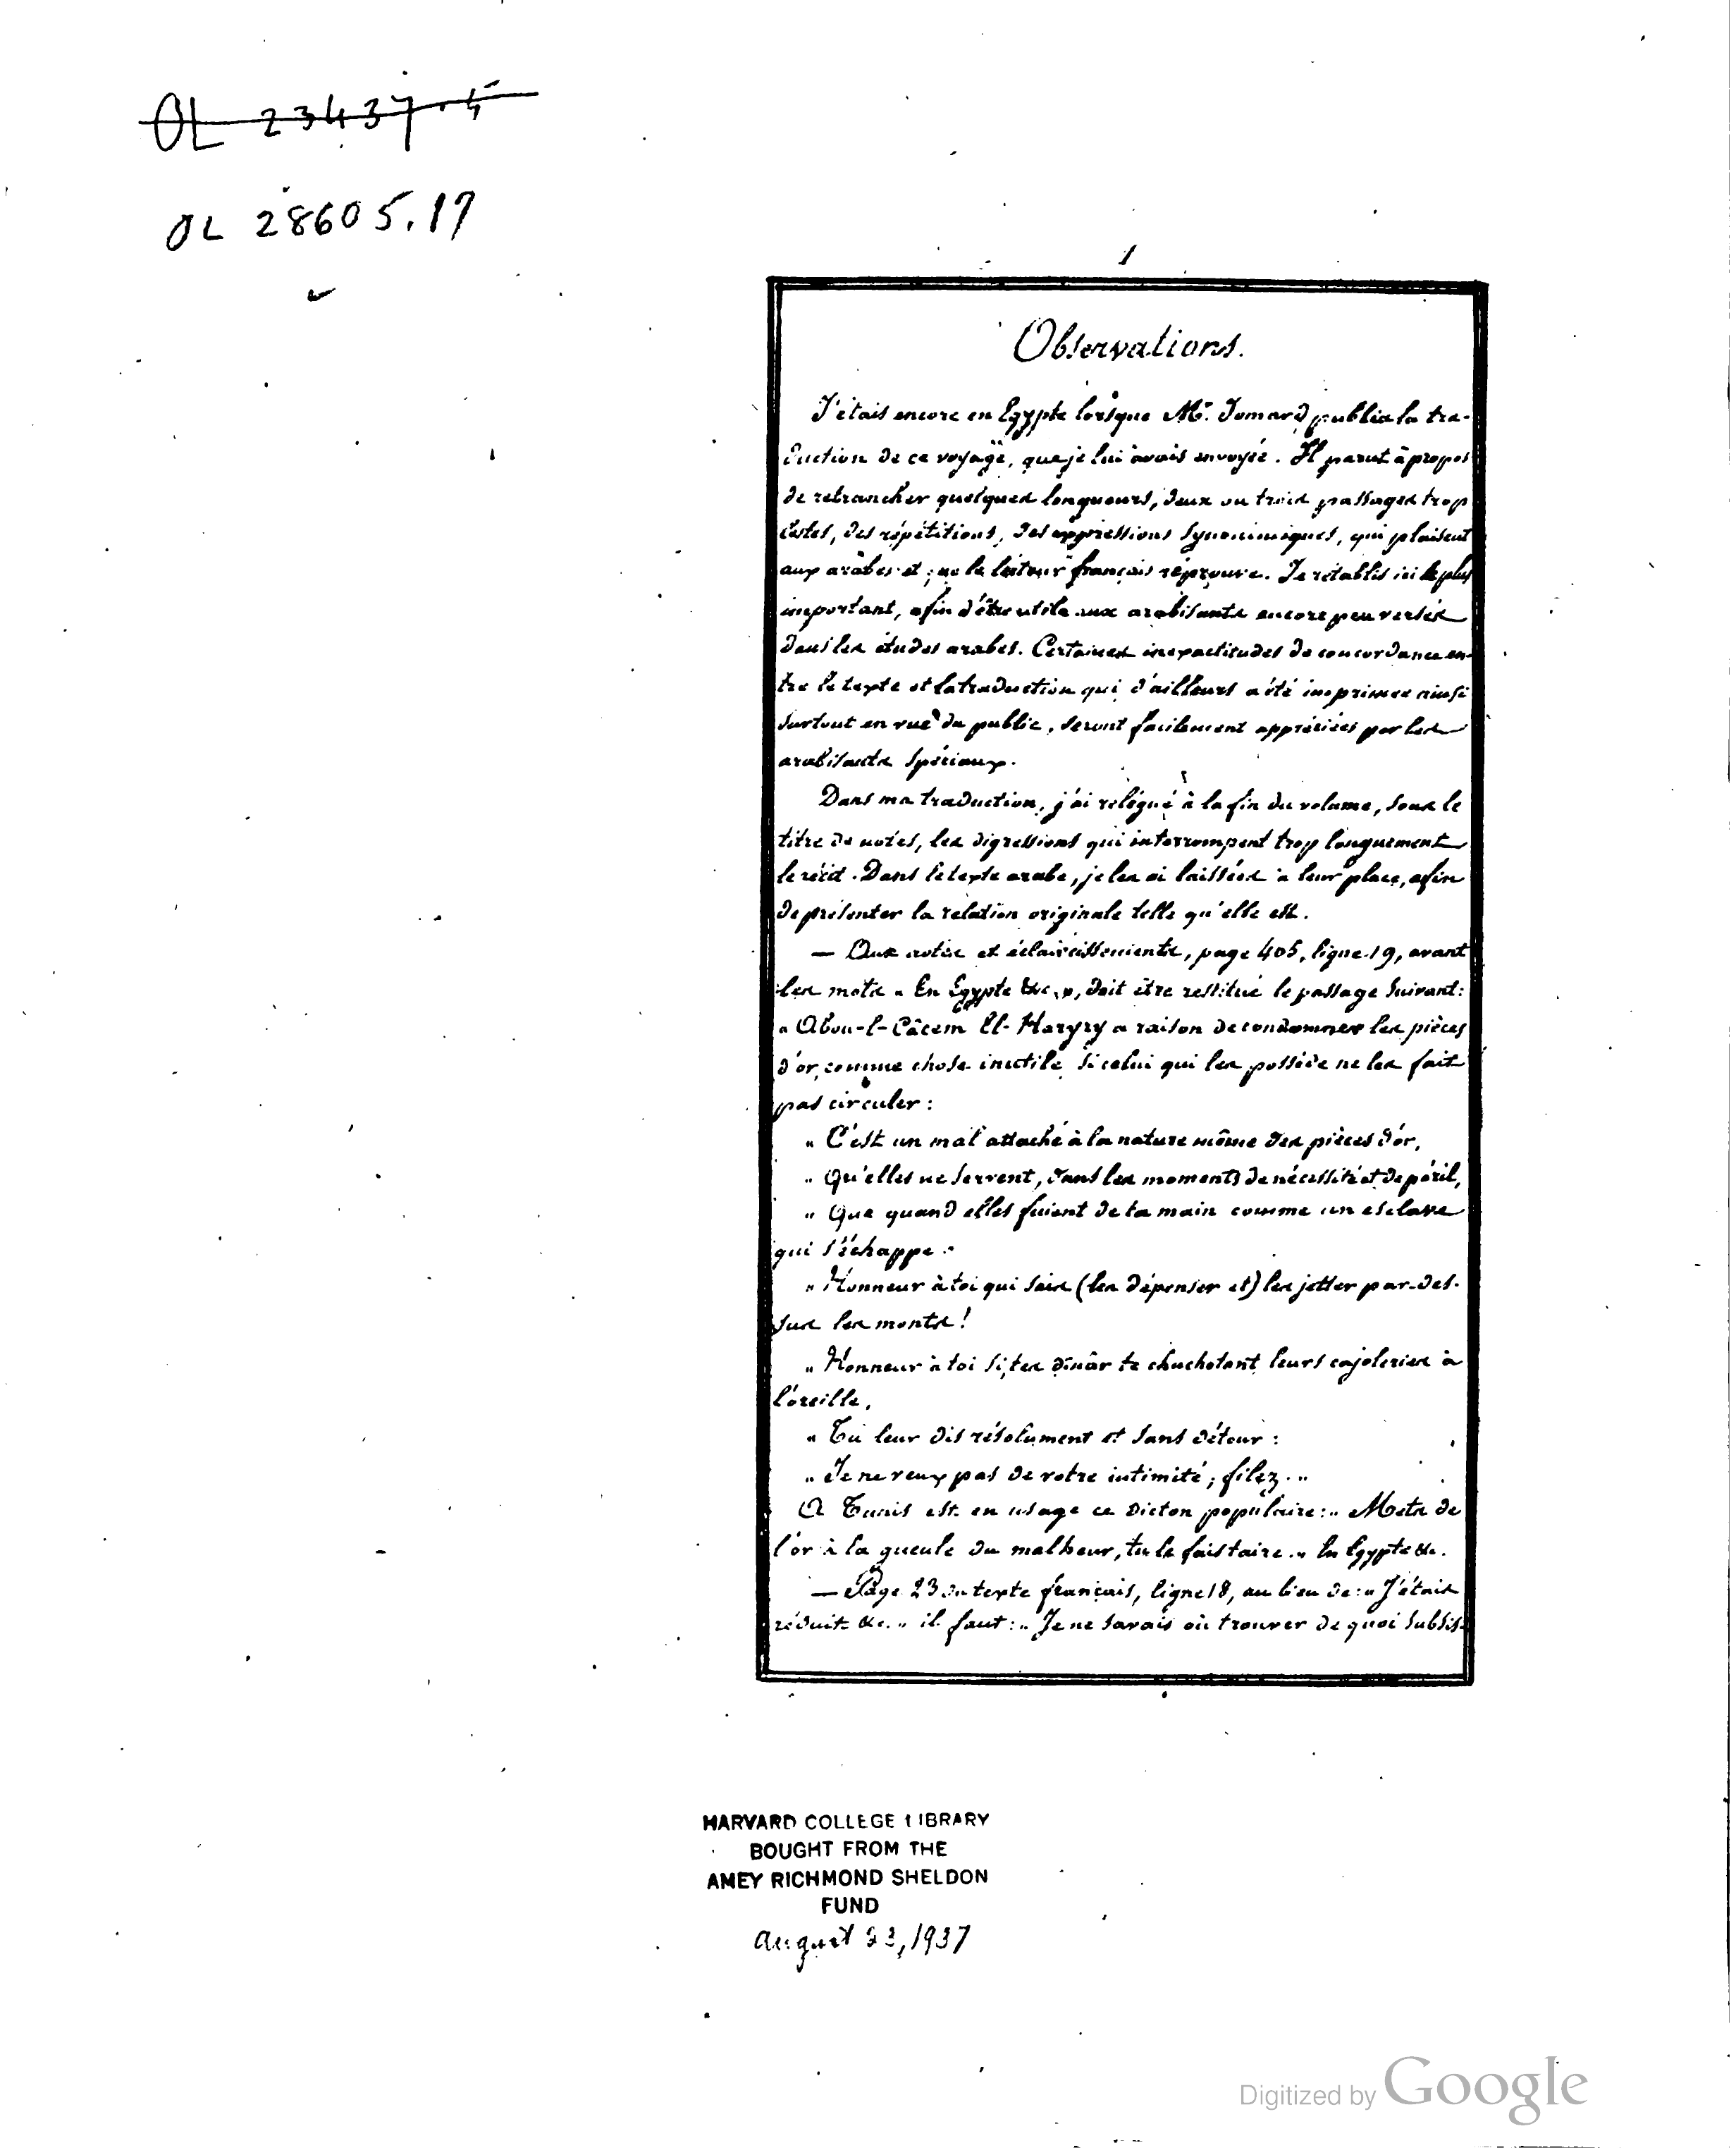 OL 23437.5
OL 28605.17
1
Observations.
J'étais encore en Egypte lorsque Mr. Jomard publia la tra-
duction de ce voyage, que je lui avais envoyée. Il parut à propos
de retrancher quelques longueurs, deux ou trois passages trop
lestes, des répétitions, des expressions synonimiques, qui plaisent
aux arabes et que le lecteur français réprouve. Je rétablis ici le plus
important, afin d'être utile aux arabisants encore peu versés
dans les études arabes. Certaines inexactitudes de concordance en-
tre le texte et la traduction qui d'ailleurs a été imprimée ainsi
surtout en vue du public, seront facilement appréciées par les
arabisants spéciaux.
Dans ma traduction, j'ai relégué à la fin du volume, sous le
titre de notes, les digressions qui interrompent trop longuement
le récit. Dans le texte arabe, je les ai laissées à leur place, afin
de présenter la relation originale telle qu'elle est.
— Aux notes et éclaircissements, page 405, ligne 19, avant
les mots " En Egypte &c. ", doit être restitué le passage suivant:
" Abou-l-Câcem El-Haryry a raison de condamner les pièces
d'or, comme chose inutile si celui qui les possède ne les fait
pas circuler :
" C'est un mal attaché à la nature même des pièces d'or,
" Qu'elles ne servent, dans les moments de nécessité et de péril,
" Que quand elles fuient de ta main comme un esclave
qui s'échappe.
" Honneur à toi qui sais (les dépenser et) les jetter par-des-
sus les monts !
" Honneur à toi si, tes dinâr te chuchotant leurs cajoleries à
l'oreille,
" Tu leur dis résolument et sans détour :
" Je ne veux pas de votre intimité ; filez. "
A Tunis est en usage ce dicton populaire: " Mets de
l'or à la gueule du malheur, tu le fais taire. " En Egypte &c.
— Page 23 du texte français, ligne 18, au lieu de: " J'étais
réduit &c. " il faut: " Je ne savais où trouver de quoi subsis-
HARVARD COLLEGE LIBRARY
BOUGHT FROM THE
AMEY RICHMOND SHELDON
FUND
August 23, 1937
Digitized by Google